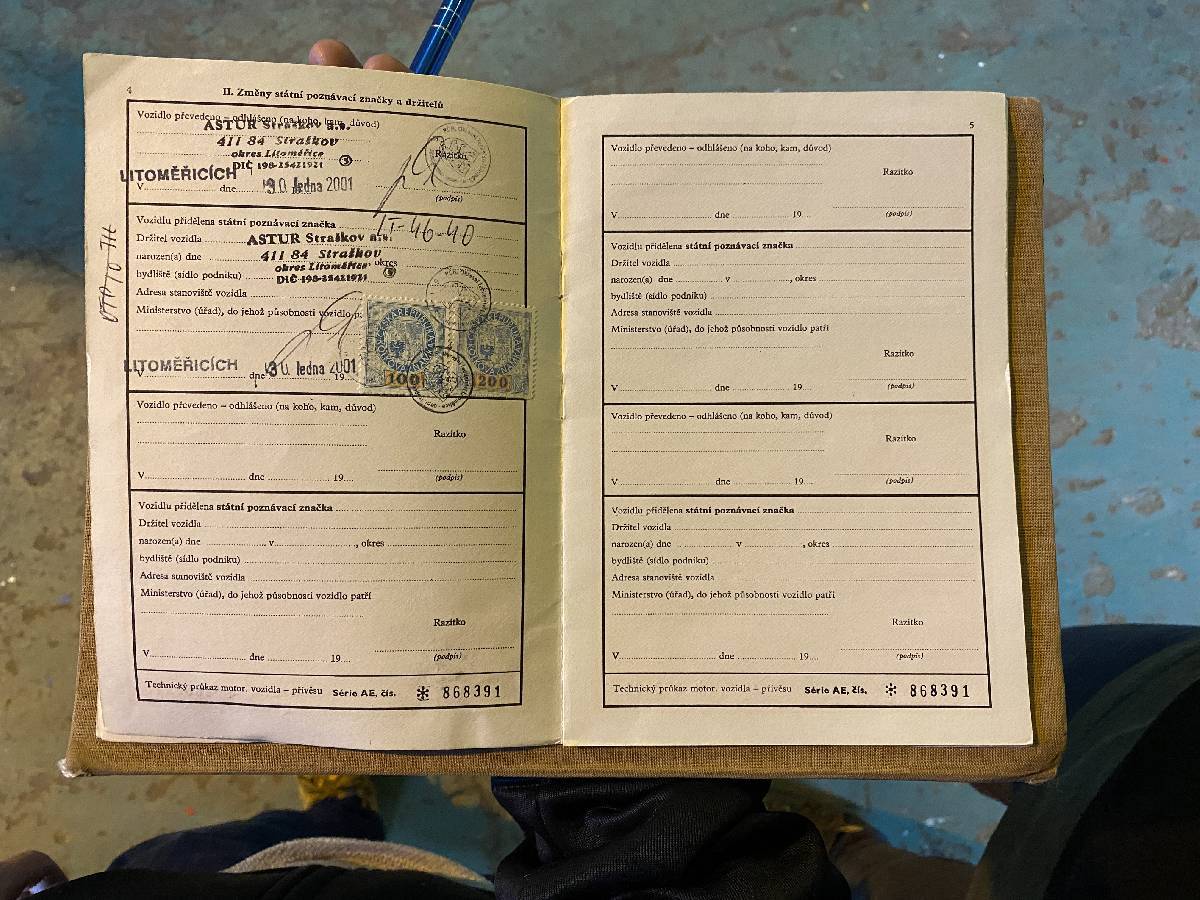 4
II. Změny státní poznávací značky a držitelů
Vozidlo převedeno – odhlášeno (na koho, kam, důvod)
ASTUR Straškov a.s.
411 84 Straškov
okres Litoměřice
DIČ 198-25421921
Razítko
LITOMĚŘICÍCH
V dne 30. ledna 2001
(podpis)
Vozidlu přidělena státní poznávací značka LT-46-40
Držitel vozidla ASTUR Straškov a.s.
narozen(a) dne 411 84 Straškov okres
okres Litoměřice
bydliště (sídlo podniku) DIČ 198-25421921
Adresa stanoviště vozidla
Ministerstvo (úřad), do jehož působnosti vozidlo p
ČESKÁ REPUBLIKA
KOLKOVÁ ZNÁMKA
100
ČESKÁ REPUBLIKA
KOLKOVÁ ZNÁMKA
200
LITOMĚŘICÍCH
V dne 30. ledna 2001 19
Vozidlo převedeno – odhlášeno (na koho, kam, důvod)
Razítko
V dne 19
(podpis)
Vozidlu přidělena státní poznávací značka
Držitel vozidla
narozen(a) dne v , okres
bydliště (sídlo podniku)
Adresa stanoviště vozidla
Ministerstvo (úřad), do jehož působnosti vozidlo patří
Razítko
V dne 19
(podpis)
Technický průkaz motor. vozidla – přívěsu Série AE, čís. ✻ 868391
5
Vozidlo převedeno – odhlášeno (na koho, kam, důvod)
Razítko
V dne 19
(podpis)
Vozidlu přidělena státní poznávací značka
Držitel vozidla
narozen(a) dne v , okres
bydliště (sídlo podniku)
Adresa stanoviště vozidla
Ministerstvo (úřad), do jehož působnosti vozidlo patří
Razítko
V dne 19
(podpis)
Vozidlo převedeno – odhlášeno (na koho, kam, důvod)
Razítko
V dne 19
(podpis)
Vozidlu přidělena státní poznávací značka
Držitel vozidla
narozen(a) dne v , okres
bydliště (sídlo podniku)
Adresa stanoviště vozidla
Ministerstvo (úřad), do jehož působnosti vozidlo patří
Razítko
V dne 19
(podpis)
Technický průkaz motor. vozidla – přívěsu Série AE, čís. ✻ 868391